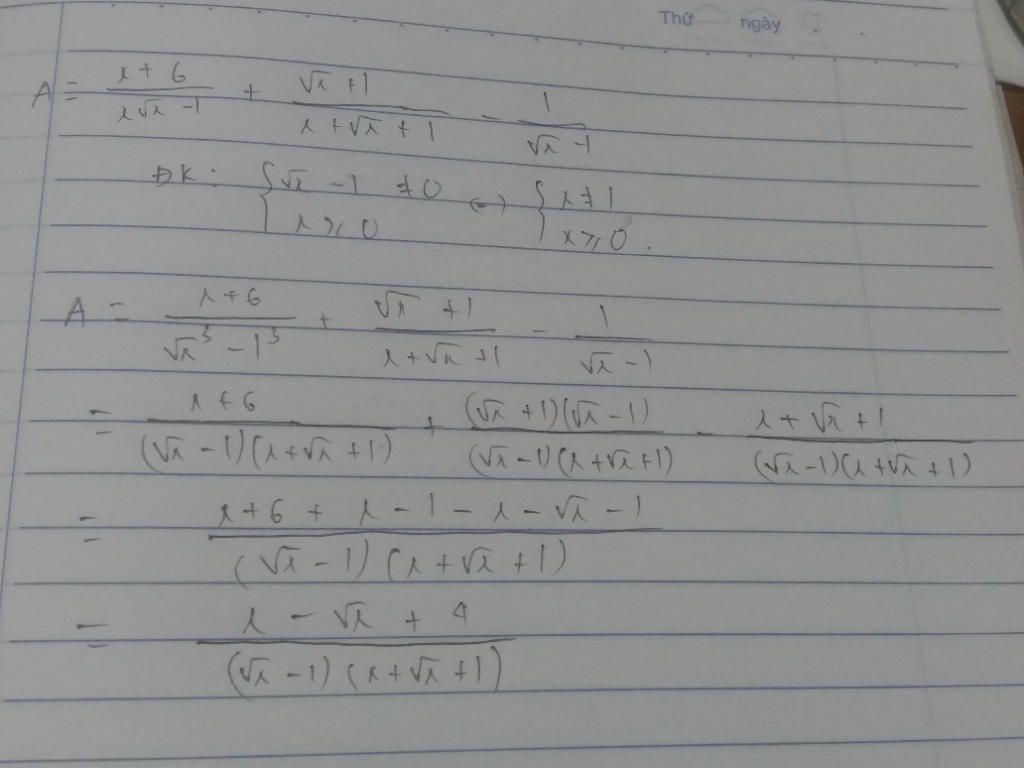 Thứ ngày
A = \frac{x + 6}{x\sqrt{x} - 1} + \frac{\sqrt{x} + 1}{x + \sqrt{x} + 1} - \frac{1}{\sqrt{x} - 1}
ĐK: \begin{cases} \sqrt{x} - 1 \neq 0 \\ x \geq 0 \end{cases} \Leftrightarrow \begin{cases} x \neq 1 \\ x \geq 0. \end{cases}
A = \frac{x + 6}{\sqrt{x}^3 - 1^3} + \frac{\sqrt{x} + 1}{x + \sqrt{x} + 1} - \frac{1}{\sqrt{x} - 1}
= \frac{x + 6}{(\sqrt{x} - 1)(x + \sqrt{x} + 1)} + \frac{(\sqrt{x} + 1)(\sqrt{x} - 1)}{(\sqrt{x} - 1)(x + \sqrt{x} + 1)} - \frac{x + \sqrt{x} + 1}{(\sqrt{x} - 1)(x + \sqrt{x} + 1)}
= \frac{x + 6 + x - 1 - x - \sqrt{x} - 1}{(\sqrt{x} - 1)(x + \sqrt{x} + 1)}
= \frac{x - \sqrt{x} + 4}{(\sqrt{x} - 1)(x + \sqrt{x} + 1)}